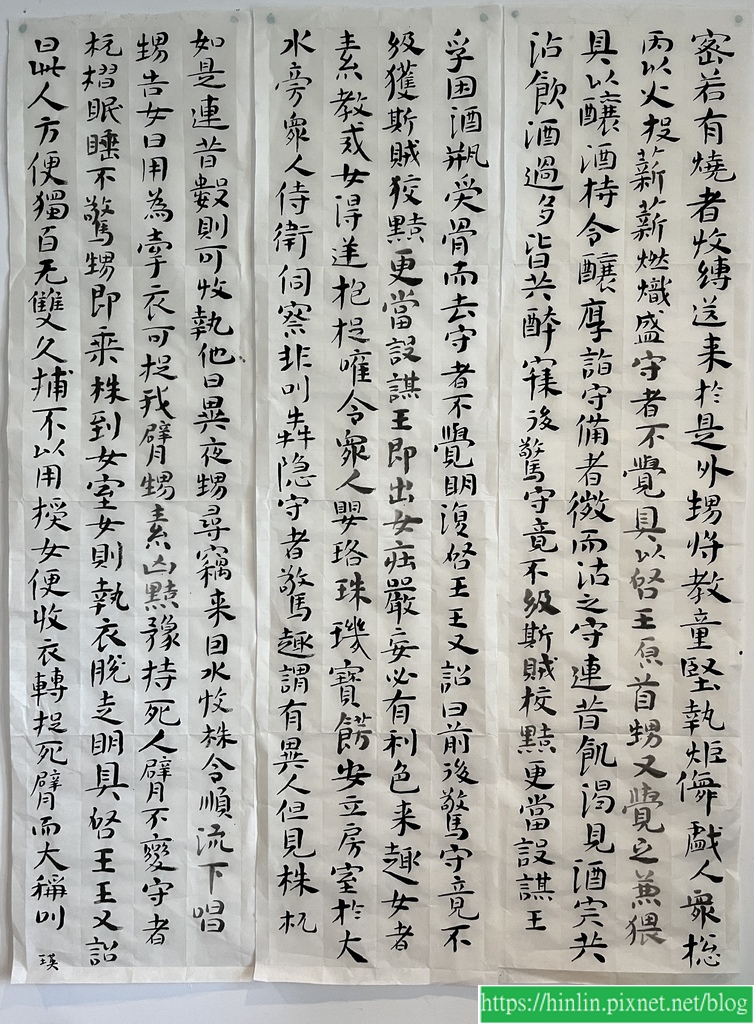 密若有燒者收縛送来於是外甥将教童竪執炬儛戯人衆揔
閙以火投薪薪燃熾盛守者不覺具以啓王原首甥又覺之兼猥
具以釀酒特令釀厚詣守備者微而沽之守連昔飢渴見酒宍共
沽飲酒過多皆共醉寐後驚守竟不級斯賊校黠更當設謀王
孚因酒瓶受骨而去守者不覺明復啓王王又詔曰前後驚守竟不
級獲斯賊狡黠更當設謀王即出女莊嚴妄必有利色来趣女者
素教戒女得逆抱捉喚令衆人嬰珞珠璣寶餝安立房室於大
水旁衆人侍衛伺察非叫犇隐守者驚趣謂有異人但見株杌
如是連昔數則可收執他日異夜甥尋竊来因水收株令順流下唱
甥告女曰用為牽衣可捉我臂甥素凶黠豫持死人臂不變守者
杌槢眠睡不驚甥即乘株到女室女則執衣脱走明具啓王王又詔
曰此人方便獨百无雙久捕不以用授女便收衣轉捉死臂而大稱叫
瑛
https://hinlin.pixnet.net/blog